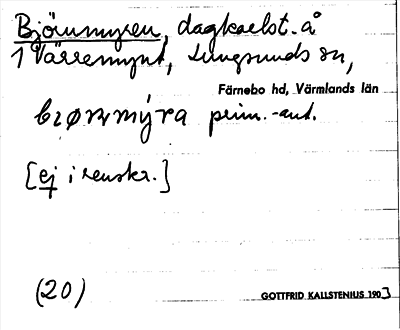 Björnmyren, dagkarlst. å
1 Värremynt, Lungsunds sn,
Färnebo hd, Värmlands län
bıørnmýra prim.-ant.
[ej i renskr.]
(20)
GOTTFRID KALLSTENIUS 1903